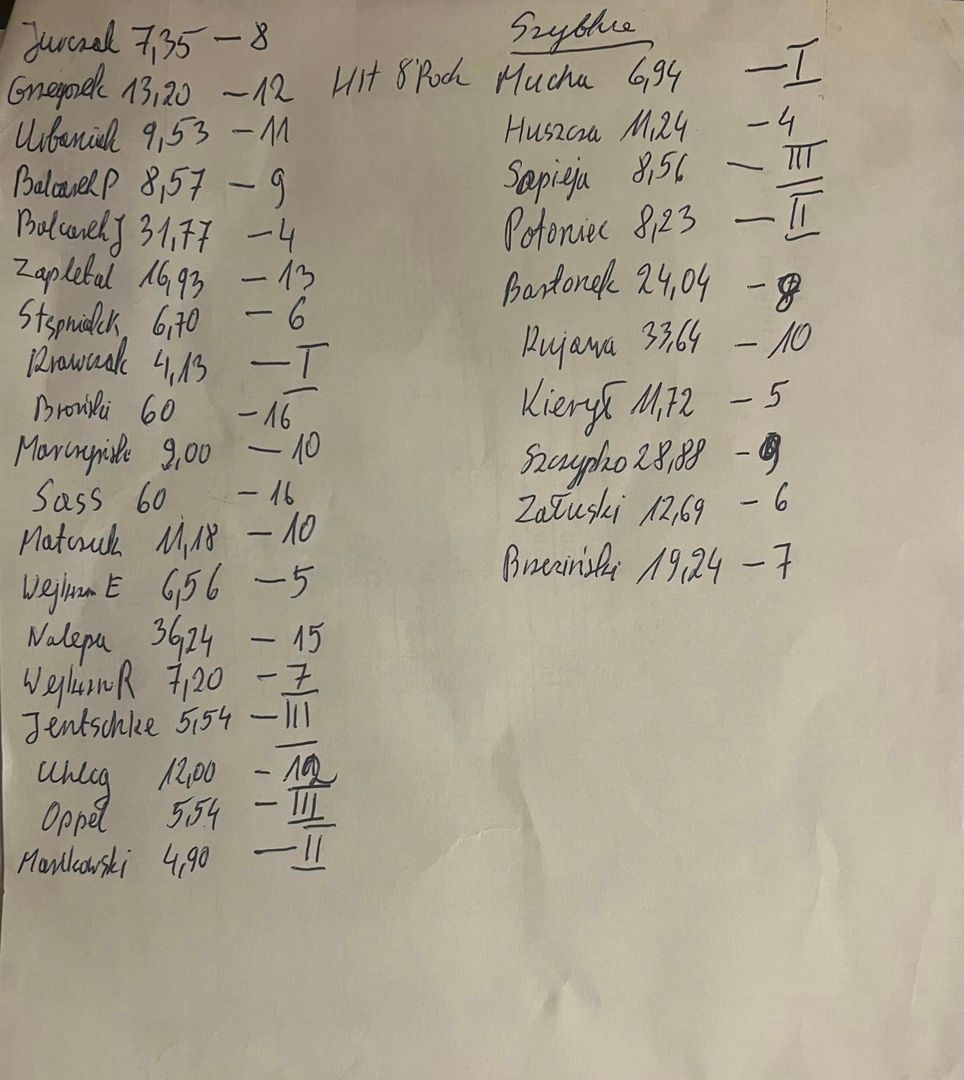 Jurczak 7,35 - 8
Grzegorek 13,20 - 12
Urbaniak 9,53 - 11
Balcarek P 8,57 - 9
Balcarek J 31,77 - 4
Zapletal 16,93 - 13
Stępniak 6,70 - 6
Krawczak 4,13 - I
Broński 60 - 16
Marczyński 9,00 - 10
Sass 60 - 16
Matczuk 11,18 - 10
E 6,56 - 5
Nalepa 36,24 - 15
R 7,20 - 7
Jentschke 5,54 - III
12,00 -
Oppel 5,54 - III
Mańkowski 4,90 - II
Szybkie
Hit 8'Rock
Mucha 6,94 - I
Huszcza 11,24 - 4
Sapieja 8,56 - III
Potoniec 8,23 - II
Bartonek 24,04 - 8
Kujawa 33,64 - 10
Kierył 11,72 - 5
Szczypko 28,88 - 9
Załuski 12,69 - 6
Brzeziński 19,24 - 7